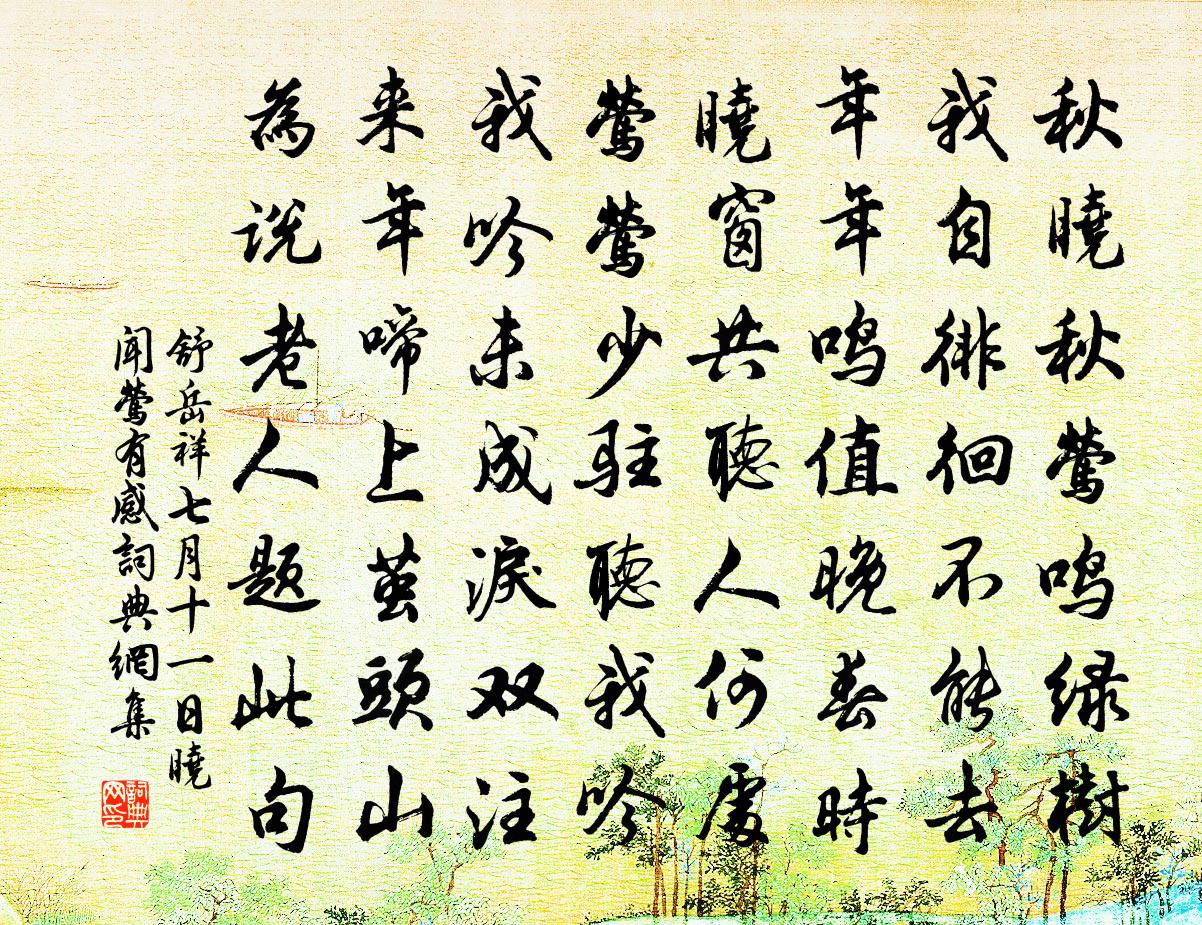 秋曉秋鶯鳴绿樹
我自徘徊不能去
年年鳴值晚春時
曉窗共聽人何處
鶯鶯少駐聽我吟
我吟未成淚双注
来年啼上茧頭山
為说老人题此句
舒岳祥七月十一日曉
聞鶯有感詞典網集
詞典网印